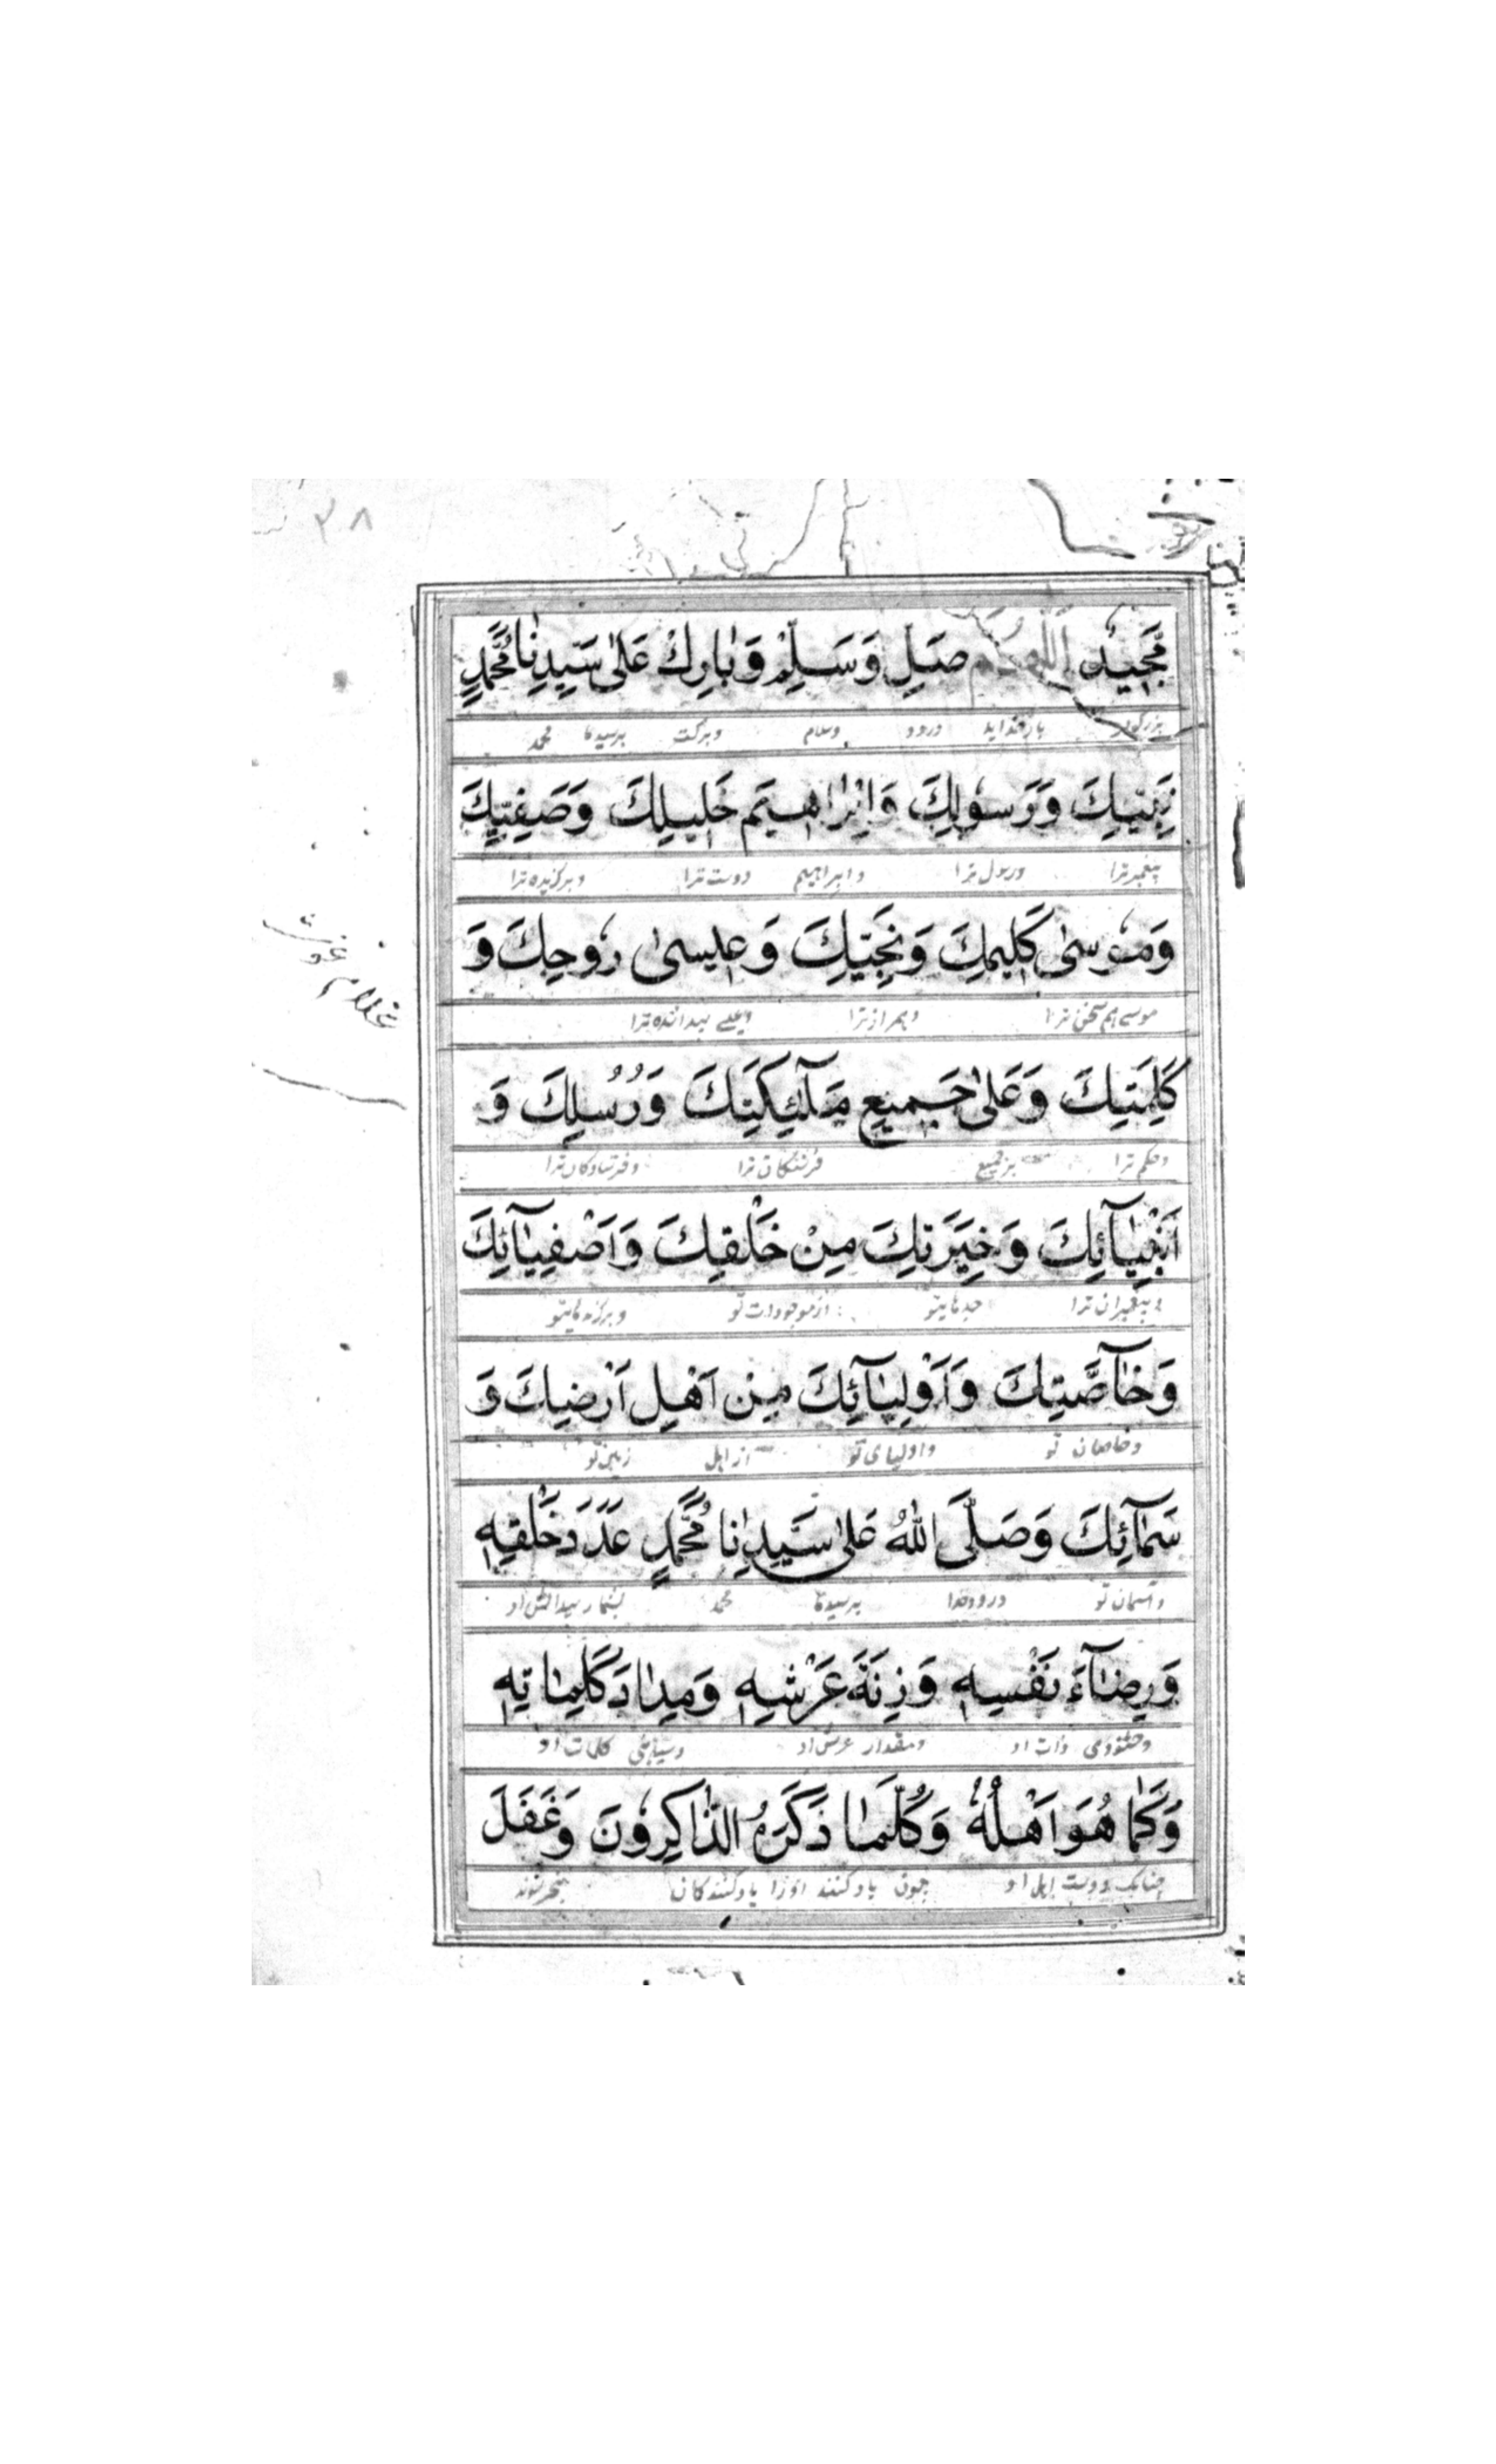 ٣٨
مَّجِيْدٌ اَللّٰهُمَّ صَلِّ وَسَلِّمْ وَبَارِكْ عَلٰى سَيِّدِنَا مُحَمَّدٍ
بزرگوار بار خدایا درود وسلام وبرکت برسیدنا محمد
نَبِيِّكَ وَرَسُوْلِكَ وَاِبْرَاهِيْمَ خَلِيْلِكَ وَصَفِيِّكَ
پیغمبر ترا ورسول ترا وابراهیم دوست ترا وبرگزیده ترا
وَمُوْسٰى كَلِيْمِكَ وَنَجِيِّكَ وَعِيْسٰى رُوْحِكَ وَ
موسی هم سخن ترا وهمراز ترا وعیسی
غلام غوث
كَلِمَتِكَ وَعَلٰى جَمِيْعِ مَلٰٓئِكَتِكَ وَرُسُلِكَ وَ
وحکم ترا برجمیع فرشتگان ترا وفرستادگان ترا
اَنْبِيَآئِكَ وَخِيَرَتِكَ مِنْ خَلْقِكَ وَاَصْفِيَآئِكَ
وپیغمبران ترا از موجودات تو
وَخَآصَّتِكَ وَاَوْلِيَآئِكَ مِنْ اَهْلِ اَرْضِكَ وَ
وخاصان تو واولیای تو از اهل زمین تو
سَمَآئِكَ وَصَلَّى اللّٰهُ عَلٰى سَيِّدِنَا مُحَمَّدٍ عَدَدَ خَلْقِهٖ
وآسمان تو درود خدا برسیدنا محمد بشمار پیدایش او
وَرِضَآءَ نَفْسِهٖ وَزِنَةَ عَرْشِهٖ وَمِدَادَ كَلِمَاتِهٖ
وخشنودی ذات او ومقدار عرش او وسیاهی کلمات او
وَكَمَا هُوَ اَهْلُهٗ وَكُلَّمَا ذَكَرَهُ الذَّاكِرُوْنَ وَغَفَلَ
چنانکه اوست اهل او چون یاد کنند اورا یاد کنندگان بیخبر شوند